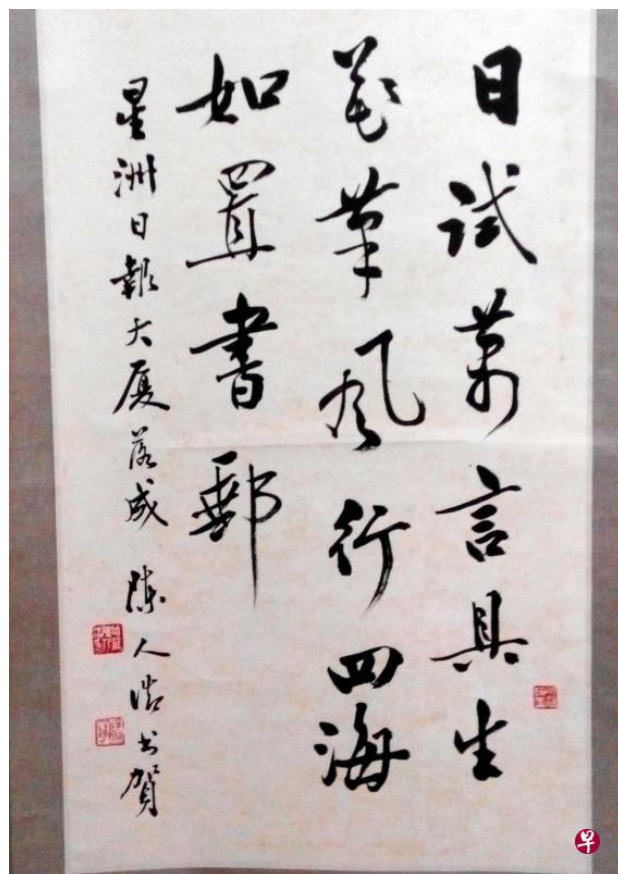 日試萬言具生
花筆風行四海
如置書郵
星洲日報大廈落成 陳人浩書賀
早